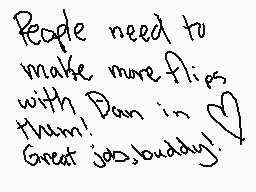 People need to
make more flips
with Dan in
them!
Great job, buddy!